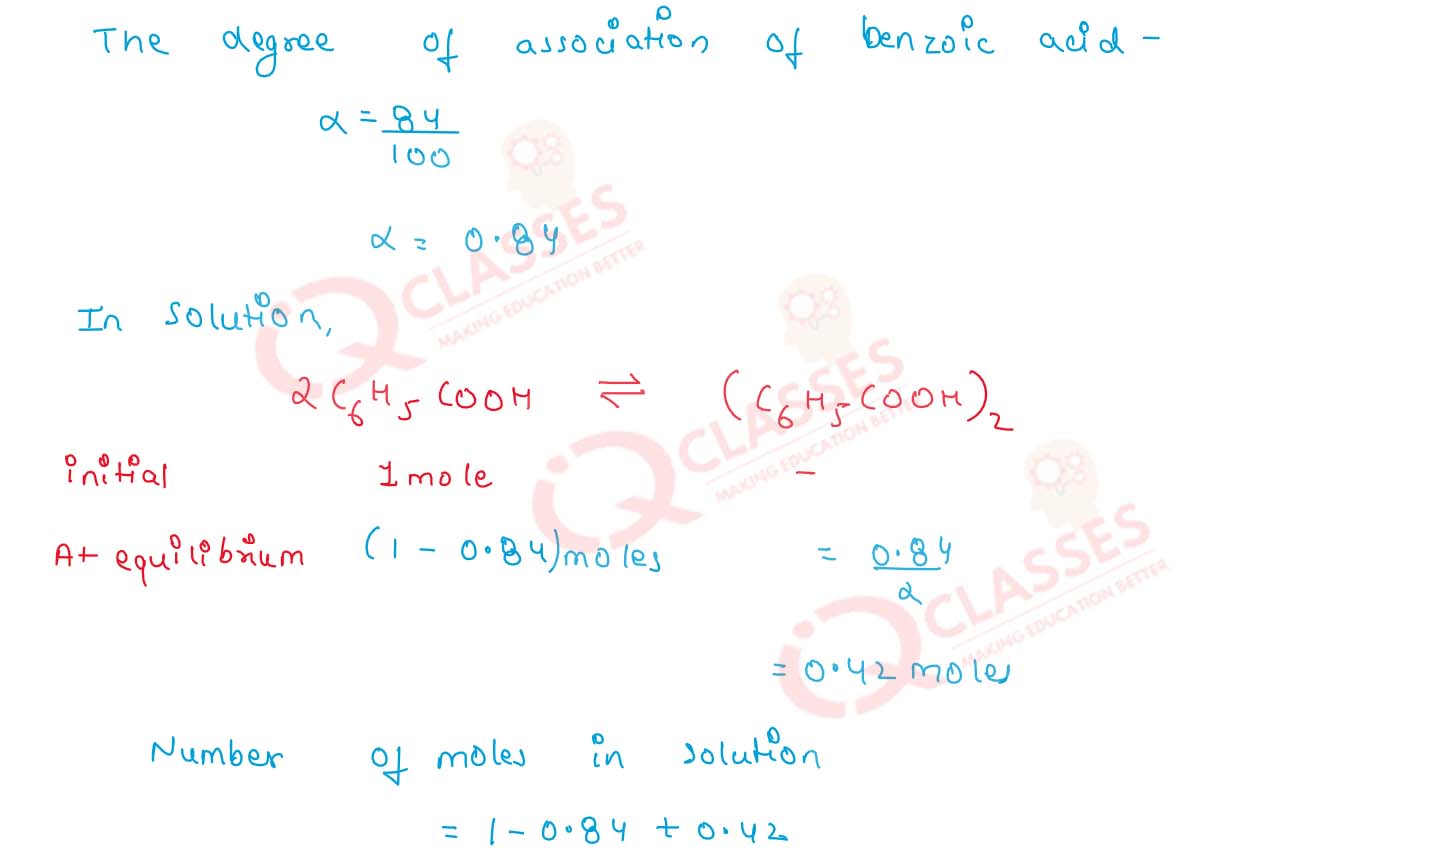 The degree of association of benzoic acid -
α = 84/100
α = 0.84
In solution,
2C₆H₅COOH ⇌ (C₆H₅COOH)₂
initial 1 mole -
At equilibrium (1 - 0.84) moles = 0.84/2
= 0.42 moles
Number of moles in solution
= 1 - 0.84 + 0.42
iQ CLASSES
MAKING EDUCATION BETTER
iQ CLASSES
MAKING EDUCATION BETTER
iQ CLASSES
MAKING EDUCATION BETTER